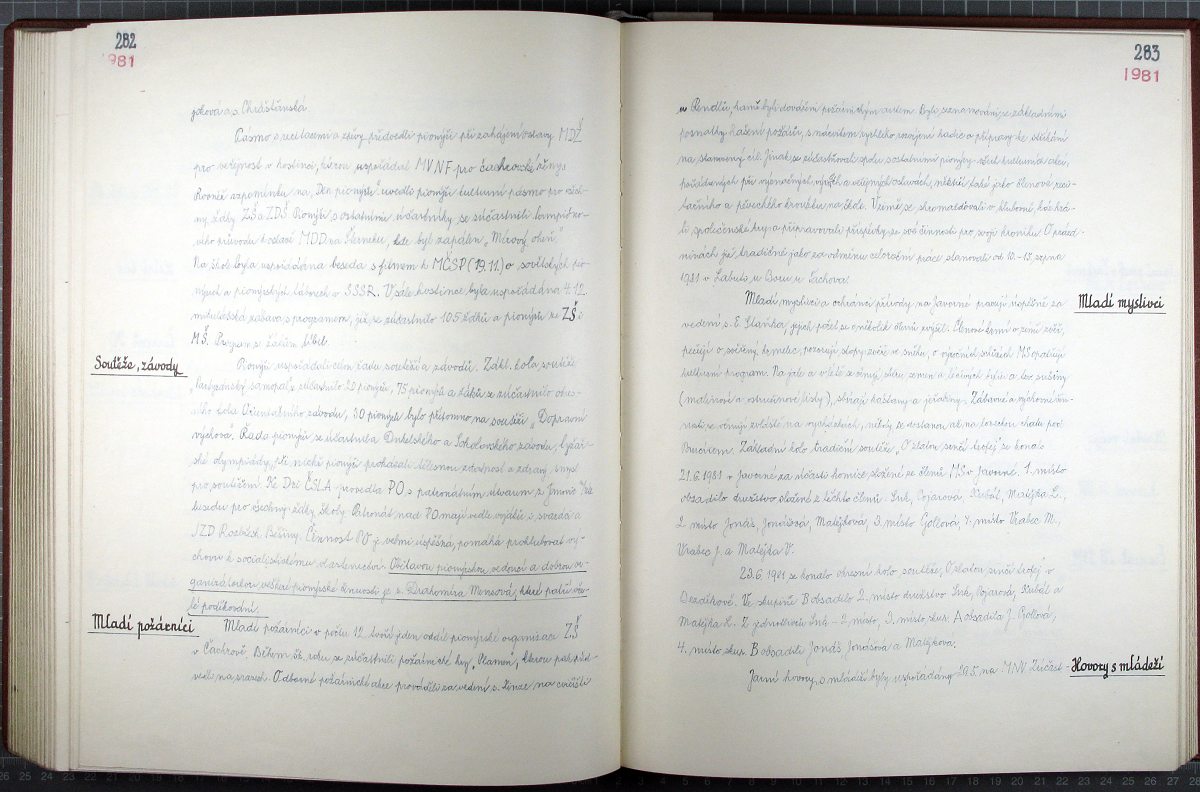 282
1981
jchová a s. Chrášťanská
Pásmo s recitacemi a zpěvy předvedli pionýři při zahájení oslavy MDŽ
pro veřejnost v hostinci, kterou uspořádal MVNF pro čachrovské ženy.
Rovněž vzpomínku na „Den pionýrů" uvedli pionýři kulturní pásmo pro všech-
ny žáky ZŠ a ZDŠ. Pionýři s ostatními účastníky se zúčastnili lampiono-
vého průvodu k oslavě MDD na Šterneku, kde byl zapálen „Mírový oheň".
Na škole byla uspořádána beseda s filmem k MČSP (19.11.) o sovětských pio-
nýrech a pionýrských táborech v SSSR. V sále hostince byla uspořádána 4.12.
mikulášská zábava s programem, jíž se zúčastnilo 105 žáků a pionýrů ze ZŠ i
MŠ. Program se všem líbil.
Soutěže, závody
Pionýři uspořádali celou řadu soutěží a závodů. Zákl. kola soutěže
„Partyzánský samopal" se zúčastnilo 20 pionýrů, 75 pionýrů a žáků se zúčastnilo okrs-
kového kola Orientačního závodu, 30 pionýrů bylo přítomno na soutěži „Dopravní
výchova". Řada pionýrů se účastnila Dukelského a Sokolovského závodu, lyžař-
ské olympiády, při nichž pionýři prokázali tělesnou zdatnost a zdravý smysl
pro soutěžení. Ke Dni ČSLA provedla PO s patronátním útvarem z Janovic
besedu pro všechny žáky školy. Patronát nad PO mají vedle vojáků s. svazáci a
JZD Rozvoj Běšiny. Činnost PO je velmi úspěšná, pomáhá prohlubovat vý-
chovu k socialistickému vlastenectví. Obětavou pionýrskou vedoucí a dobrou or-
ganizátorkou veškeré pionýrské činnosti je s. Drahomíra Menšová, které patří vře-
lé poděkování.
Mladí požárníci
Mladí požárníci v počtu 12 tvoří jeden oddíl pionýrské organizace ZŠ
v Čachrově. Během šk. roku se zúčastnili požárnické hry „Plamen", kterou pak před-
vedli na srazech. Odborné požárnické akce prováděli za vedení s. Lince na cvičišti
283
1981
u Rendlů, kam byli dováženi požárnickým autem. Byli seznamováni se základními
poznatky hašení požárů, s nácvikem rychlého rozvinutí hadic a přípravy ke stříkání
na stanovený cíl. Jinak se zúčastňovali spolu s ostatními pionýry všech kulturních akcí,
pořádaných při významných výročích a veřejných oslavách, někteří také jako členové reci-
tačního a pěveckého kroužku na škole. V zimě se shromažďovali v klubovně, kde hrá-
li společenské hry a připravovali příspěvky ze své činnosti pro svoji kroniku. O prázd-
ninách již tradičně jako za odměnu celoroční práce stanovali od 10.-15. srpna
1981 v Labuti u Boru u Tachova.
Mladí myslivci
Mladí myslivci a ochránci přírody na Javorné pracují úspěšně za
vedení s. E. Slavíka, jejich počet se o několik členů zvýšil. Členové krmí v zimě zvěř,
pečují o svěřený krmelec, pozorují stopy zvěře ve sněhu, o výročních schůzích MS opatřují
kulturní program. Na jaře a v létě se věnují sběru semen a léčivých bylin a lev. sušiny
(malinové a ostružinové listy), sbírají kaštany a jeřabiny. Zábavě a výchově v pří-
rodě se věnují zvláště na vycházkách, někdy se dostanou až na loveckou chatu pod
Můstkem. Základní kolo tradiční soutěže „O zlatou srnčí trofej" se konalo
21.6.1981 v Javorné za účasti komise složené ze členů MS v Javorné. 1. místo
obsadilo družstvo složené z těchto členů: Ink, Pojarová, Kubát, Matějka L.,
2. místo Jonáš, Jonášová, Matějková, 3. místo Gollová, 4. místo Vrabec M.,
Vrabec J. a Matějka V.
23.6.1981 se konalo okresní kolo soutěže „O zlatou srnčí trofej" v
Dezdíkově. Ve skupině B obsadilo 2. místo družstvo Ink, Pojarová, Kubát a
Matějka L. Z jednotlivců Ink - 2. místo, 3. místo skup. A obsadila J. Gollová,
4. místo skup. B obsadili Jonáš, Jonášová a Matějková.
Hovory s mládeží
Jarní hovory s mládeží byly uspořádány 28.5. na MNV. Zúčast-